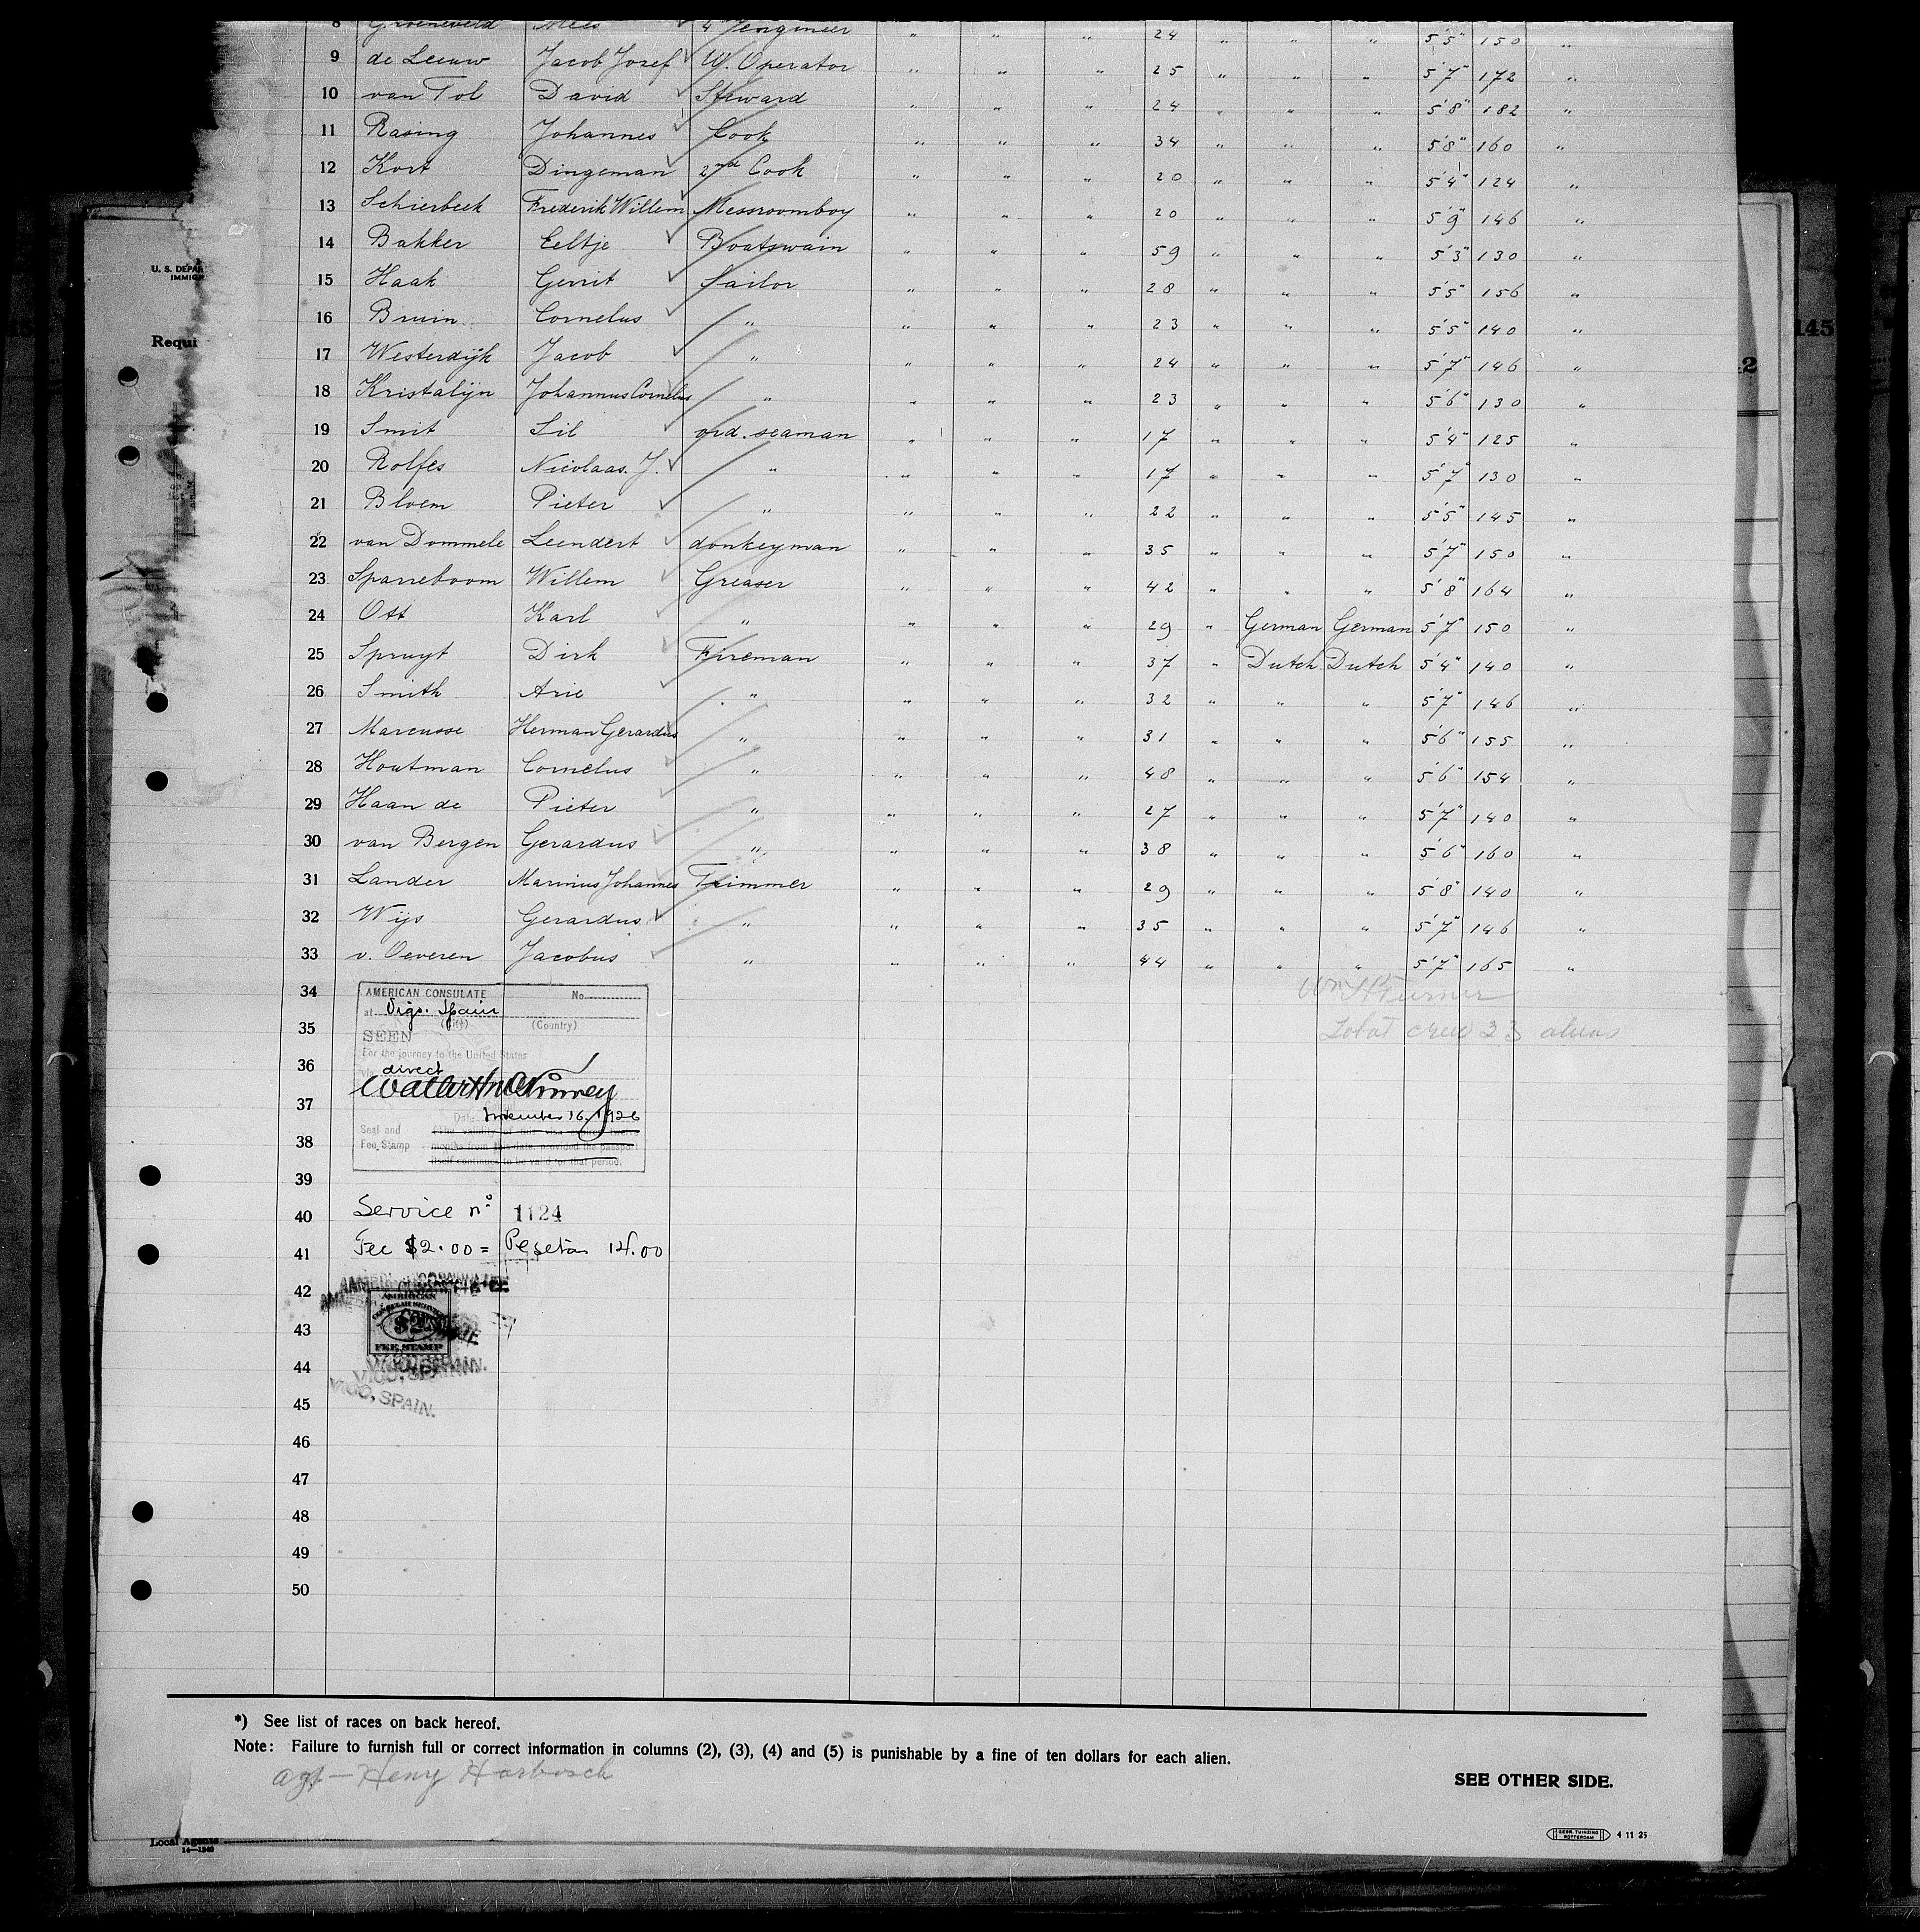 8 Groeneveld Mees 4" engineer " " " 24 " " " 5'5" 150 "
9 de Leeuw Jacob Josef W. Operator " " " 25 " " " 5'7" 172 "
10 van Tol David Steward " " " 24 " " " 5'8" 182 "
11 Rasing Johannes Cook " " " 34 " " " 5'8" 160 "
12 Kort Dingeman 2nd Cook " " " 20 " " " 5'4" 124 "
13 Schierbeek Frederik Willem Messroomboy " " " 20 " " " 5'9" 146 "
U. S. DEPAR
IMMIGR
14 Bakker Eeltje Boatswain " " " 59 " " " 5'3" 130 "
15 Haak Gerrit Sailor " " " 28 " " " 5'5" 156 "
16 Bruin Cornelus " " " " 23 " " " 5'5" 140 "
145
Requi
17 Westerdijk Jacob " " " " 24 " " " 5'7" 146 "
2
18 Kristalijn Johannus Cornelus " " " " 23 " " " 5'6" 130 "
19 Smit Sil ord. seaman " " " 17 " " " 5'4" 125 "
20 Rolfes Nicolaas. J. " " " " 17 " " " 5'7" 130 "
21 Bloem Pieter " " " " 22 " " " 5'5" 145 "
22 van Dommele Leendert donkeyman " " " 35 " " " 5'7" 150 "
23 Sparreboom Willem Greaser " " " 42 " " " 5'8" 164 "
24 Ott Karl " " " " 29 " German German 5'7" 150 "
25 Spruyt Dirk Fireman " " " 37 " Dutch Dutch 5'4" 140 "
26 Smith Arie " " " " 32 " " " 5'7" 146 "
27 Marcusse Herman Gerardus " " " " 31 " " " 5'6" 155 "
28 Houtman Cornelus " " " " 48 " " " 5'6" 154 "
29 Haan de Pieter " " " " 27 " " " 5'7" 140 "
30 van Bergen Gerardus " " " " 38 " " " 5'6" 160 "
31 Lander Marinus Johannes Trimmer " " " 29 " " " 5'8" 140 "
32 Wijs Gerardus " " " " 35 " " " 5'7" 146 "
33 v. Oeveren Jacobus " " " " 44 " " " 5'7" 165 "
34
Wm H Turner
AMERICAN CONSULATE No.
at Vigo. Spain
(City) (Country)
35
Total crew 33 aliens
SEEN
For the journey to the United States
36
via direct
37
Date November 16, 1926
38
Seal and (The validity of this visa twelve
Fee Stamp months from this date, provided the passport
itself continues to be valid for that period.
39
40 Service nº 1124
41 Fee $2.00 = Pesetas 14.00
42
AMERICAN
CONSULAR SERVICE
43
$2
FEE STAMP
44
VIGO, SPAIN.
VIGO, SPAIN.
45
VIGO, SPAIN.
46
47
48
49
50
*) See list of races on back hereof.
Note: Failure to furnish full or correct information in columns (2), (3), (4) and (5) is punishable by a fine of ten dollars for each alien.
agt - Heny Harbosch
SEE OTHER SIDE.
Local Agents
14—1240
GEBR. TUINZING
ROTTERDAM
4 11 25